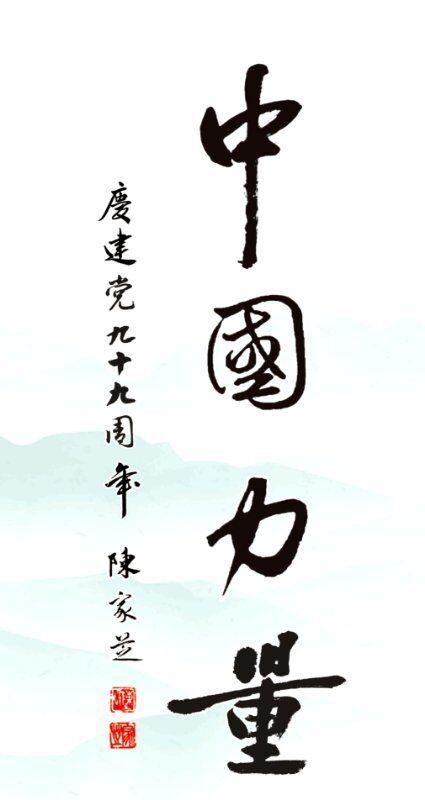 中國力量
慶建党九十九周年 陳家芝